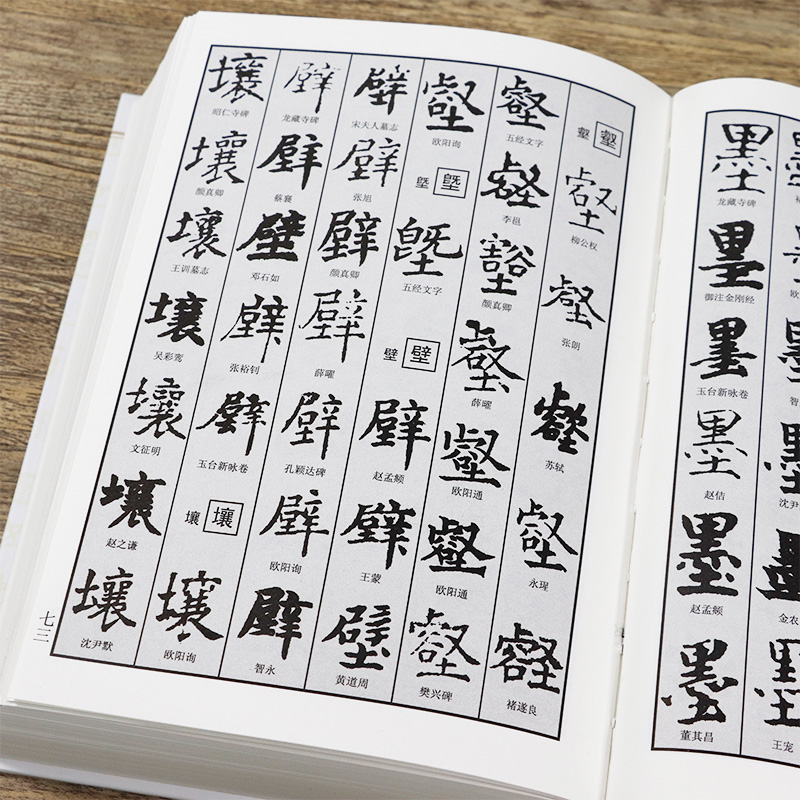 墨
欧
墨
智
墨
沈尹
墨
金农
墨
王宠
墨
龙藏寺碑
墨
御注金刚经
墨
玉台新咏卷
墨
赵佶
墨
赵孟頫
墨
董其昌
壑 壑
壑
柳公权
壑
张朗
壑
苏轼
壑
永瑆
壑
褚遂良
壑
五经文字
壑
李邕
壑
颜真卿
壑
薛曜
壑
欧阳通
壑
欧阳通
壑
樊兴碑
壑
欧阳询
塈 塈
塈
五经文字
壁 壁
壁
赵孟頫
壁
王蒙
壁
黄道周
壁
宋夫人墓志
壁
张旭
壁
颜真卿
壁
薛曜
壁
孔颖达碑
壁
欧阳询
壁
智永
壁
龙藏寺碑
壁
蔡襄
壁
邓石如
壁
张裕钊
壁
玉台新咏卷
壤 壤
壤
欧阳询
壤
昭仁寺碑
壤
颜真卿
壤
王训墓志
壤
吴彩鸾
壤
文征明
壤
赵之谦
壤
沈尹默
七三